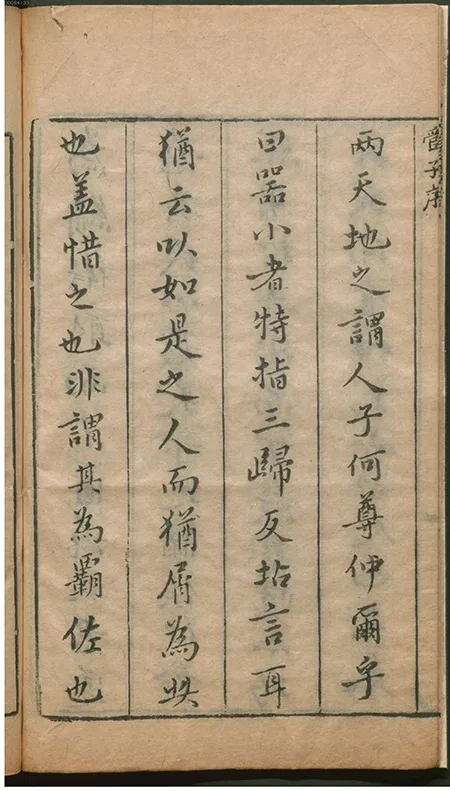 管子序
兩天地之謂人子何尊仲爾乎
曰器小者特指三歸反坫言耳
猶云以如是之人而猶屑為此
也盖惜之也非謂其為霸佐也